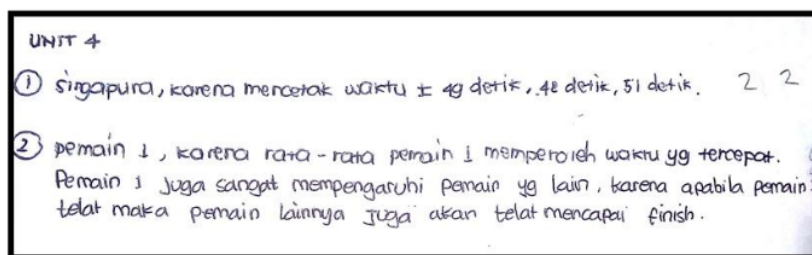 UNIT 4
① singapura, karena mencetak waktu ± 49 detik, 48 detik, 51 detik. 2 2
② pemain 1, karena rata-rata pemain 1 memperoleh waktu yg tercepat.
Pemain 1 juga sangat mempengaruhi pemain yg lain, karena apabila pemain
telat maka pemain lainnya juga akan telat mencapai finish.